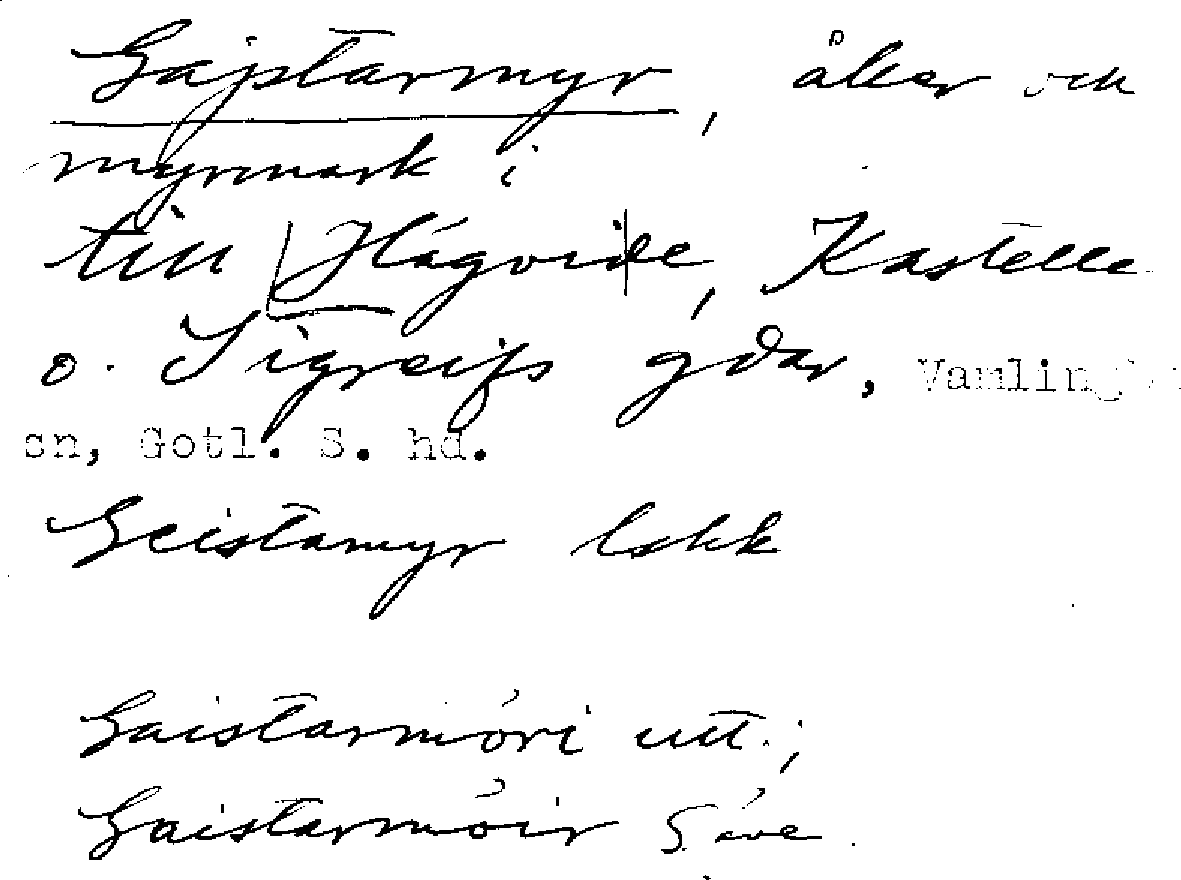 Gajstarmyr, åker och
myrmark i
till Hägvide, Kastelle
o. Sigreifs gdar, Vamlingbo
sn, Gotl. S. hd.
Geistamyr lskk
Gaistarmöri utt.;
Gaistarmöir Säve